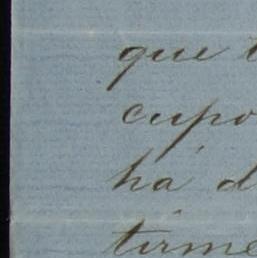 que
cupo
há d
tirme